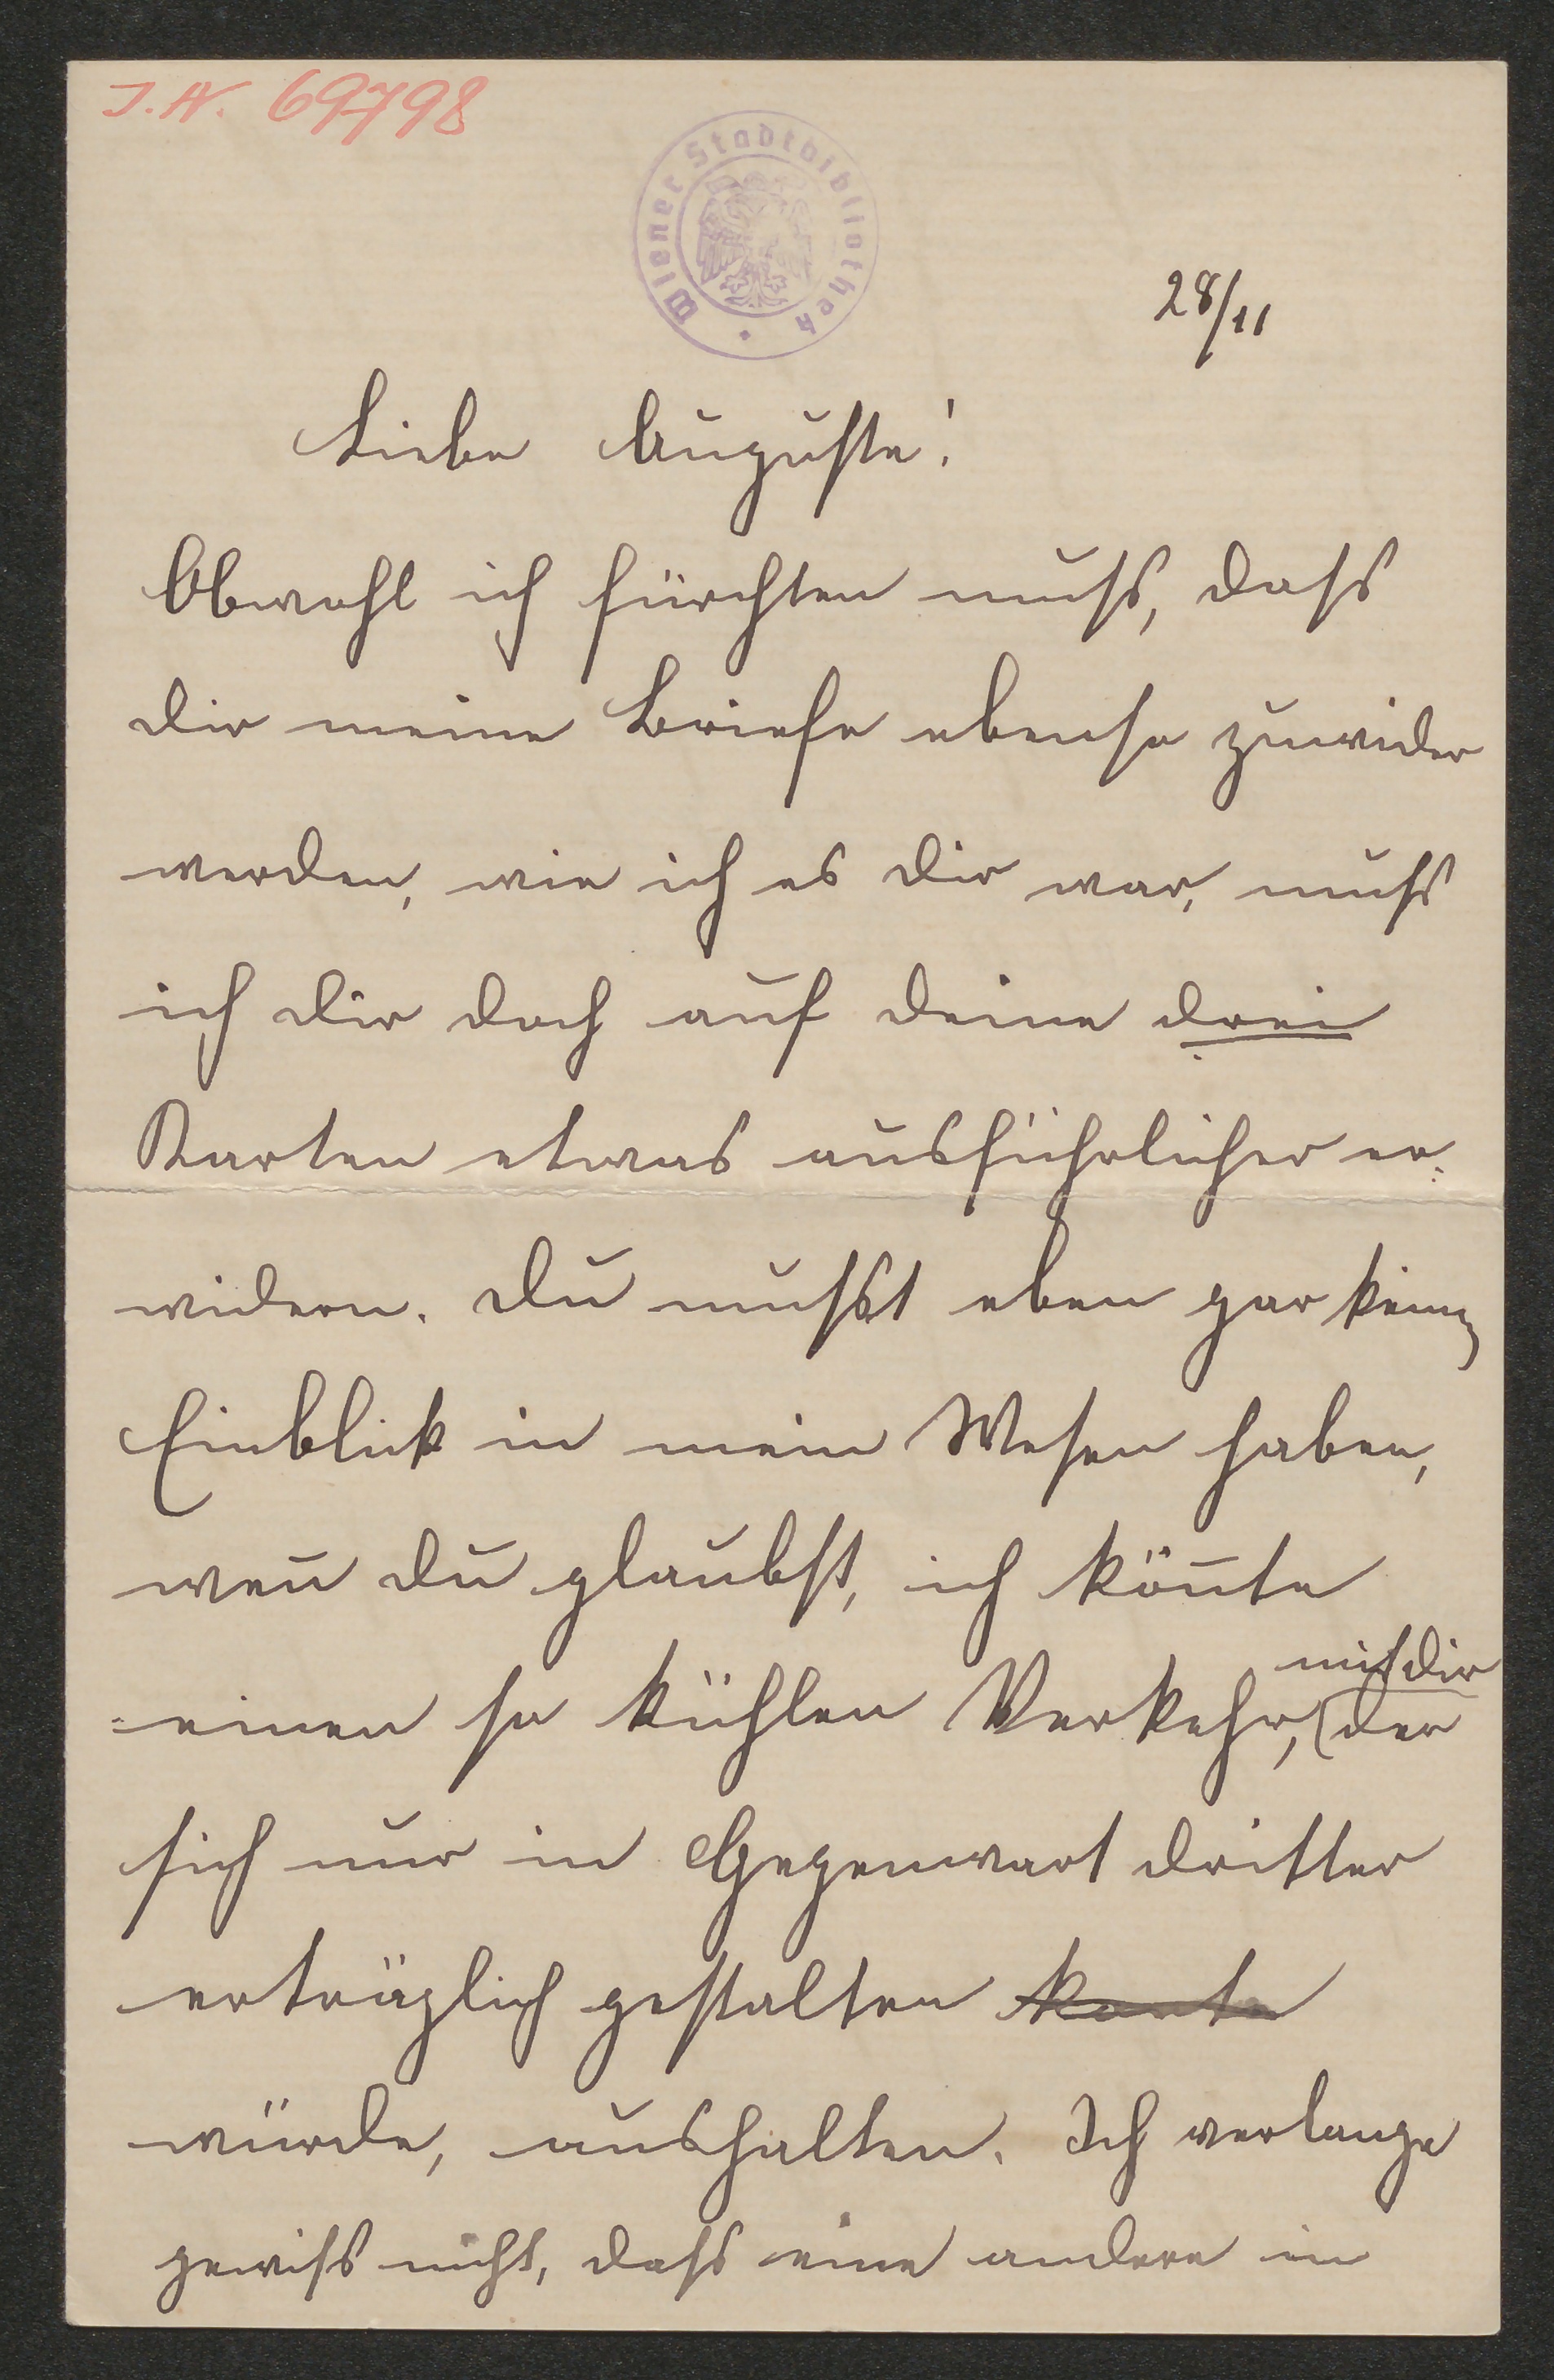 J.N. 69798
Wiener Stadtbibliothek
28/11
Liebe Auguste!
Obwohl ich fürchten muss, dass
dir meine Briefe ebenso zuwider
werden, wie ich es dir war, muss
ich dir doch auf deine drei
Karten etwas ausführlicher er-
widern. Du musst eben gar keinen
Einblick in mein Wesen haben,
wen̅ du glaubst, ich kön̅te
einen so kühlen Verkehr, mit dir der
sich nur in Gegenwart dritter
erträglich gestalten kon̅te
würde, aushalten. Ich verlange
gewiss nicht, dass eine andere in